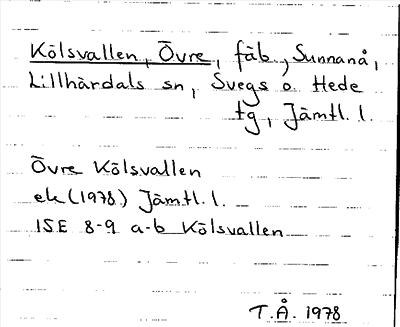 Kölsvallen, Övre, fäb., Sunnanå,
Lillhärdals sn, Svegs o Hede
tg, Jämtl. l.
Övre Kölsvallen
ek (1978) Jämtl. l.
15E 8-9 a-b Kölsvallen
T.Å. 1978